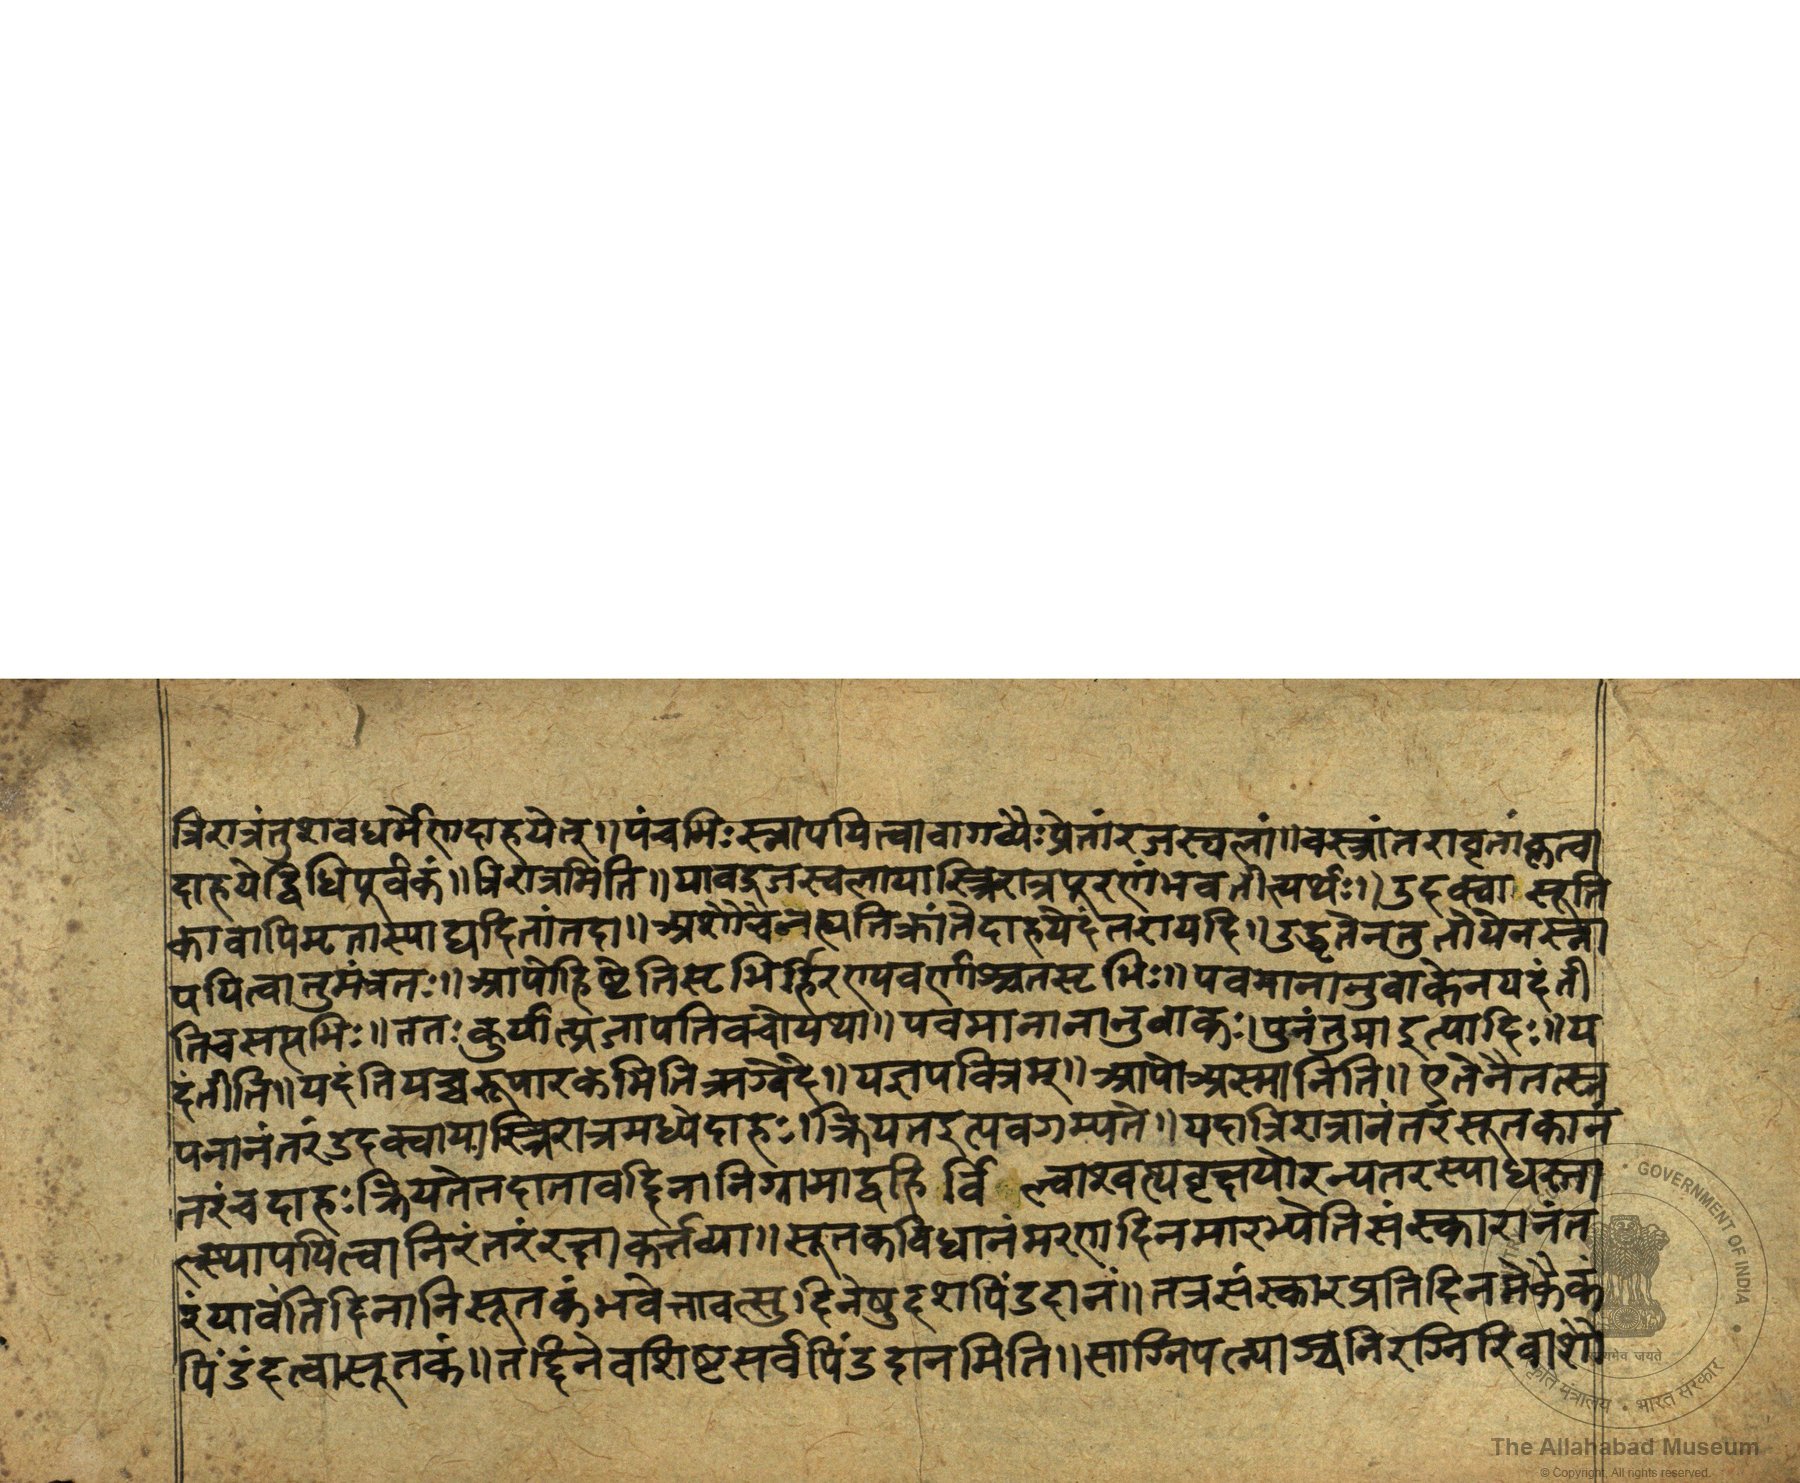 त्रिरात्रंतुशवधर्मेणदाहयेत्॥पंचभिःस्नापयित्वावागव्यैःप्रेतांरजस्वलां॥वस्त्रांतरावृतांकृत्वा
दाहयेद्विधिपूर्वकं॥त्रिरात्रमिति॥यावद्रजस्वलायास्त्रिरात्रपूरणंभवतीत्यर्थः॥उदक्या सूति
कावापिमृतास्याद्यदितांतदा॥अशौचेत्वत्यतिक्रांतेदाहयेदंतरायदि॥उद्धृतेनतुतोयेनस्ना
पयित्वातुमंत्रतः॥आपोहिष्टेतिसृभिर्हिरण्यवर्णाश्चतसृभिः॥पवमानानुवाकेनयदंती
तिचसप्तभिः॥ततःकुर्यात्प्रजापतिवचोयथा॥पवमानानानुवाकः।पुनंतुमाइत्यादिः॥य
दंतीति॥यदंतियच्चदूपारकेमितिऋग्वेदे॥यज्ञपवित्रम्॥आपोअस्मानिति॥एतेनैतत्स्न
पनानंतरंउदक्यायास्त्रिरात्रमध्येदाहः।क्रियतइत्यवगम्यते॥यदात्रिरात्रानंतरंसूतकानं
तरंचदाहःक्रियतेतदातावद्दिनानिग्रामाद्बहि र्वि ल्वाश्वत्थवृक्षयोरन्यतरस्याधस्ता
त्स्थापयित्वानिरंतरंरक्षाकर्त्तव्या॥सूतकविधानंमरणदिनमारभ्येतिसंस्कारानंत
रंयावंतिदिनानिसूतकंभवेत्तावत्सु।दिनेषुदशपिंडदानं॥तत्रसंस्कारप्रतिदिनमेकैकं
पिंडंदत्वासूतकं॥तद्दिनेवशिष्टसर्वपिंडदानमिति॥साग्निपत्न्याश्चनिरग्निरिवाशौ
GOVERNMENT OF INDIA
सत्यमेव जयते
संस्कृति मंत्रालय • भारत सरकार
The Allahabad Museum
© Copyright, All rights reserved.